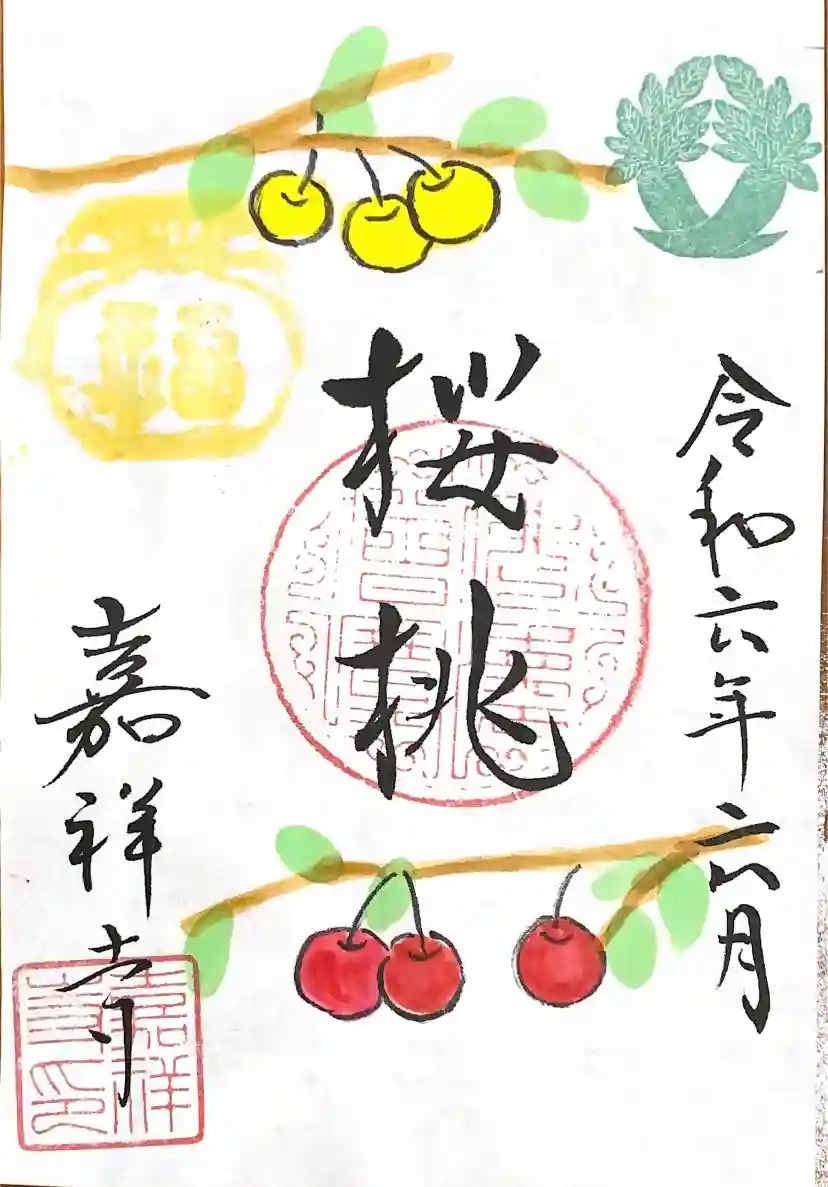 令和六年六月
桜桃
嘉祥寺
福
嘉祥
寺印